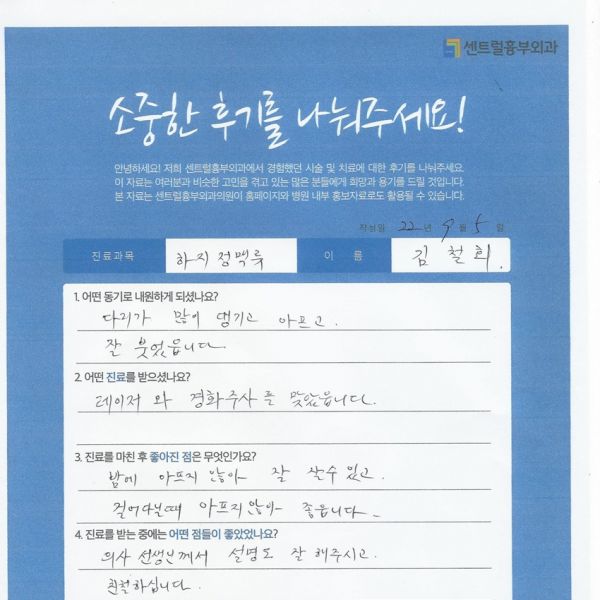 센트럴흉부외과
소중한 후기를 나눠주세요!
안녕하세요! 저희 센트럴흉부외과에서 경험했던 시술 및 치료에 대한 후기를 나눠주세요.
이 자료는 여러분과 비슷한 고민을 겪고 있는 많은 분들에게 희망과 용기를 드릴 것입니다.
본 자료는 센트럴흉부외과의원이 홈페이지와 병원 내부 홍보자료로도 활용될 수 있습니다.
작성일 22년 9월 5일
진료과목 하지정맥류 이 름 김철희.
1. 어떤 동기로 내원하게 되셨나요?
다리가 많이 땡기고 아프고.
잘 붓었읍니다
2. 어떤 진료를 받으셨나요?
레이저와 경화주사를 맞았읍니다.
3. 진료를 마친 후 좋아진 점은 무엇인가요?
밤에 아프지 않아 잘 잘수 있고.
걸어다닐때 아프지않아 좋읍니다.
4. 진료를 받는 중에는 어떤 점들이 좋았었나요?
의사 선생님께서 설명도 잘 해주시고.
친절하십니다.